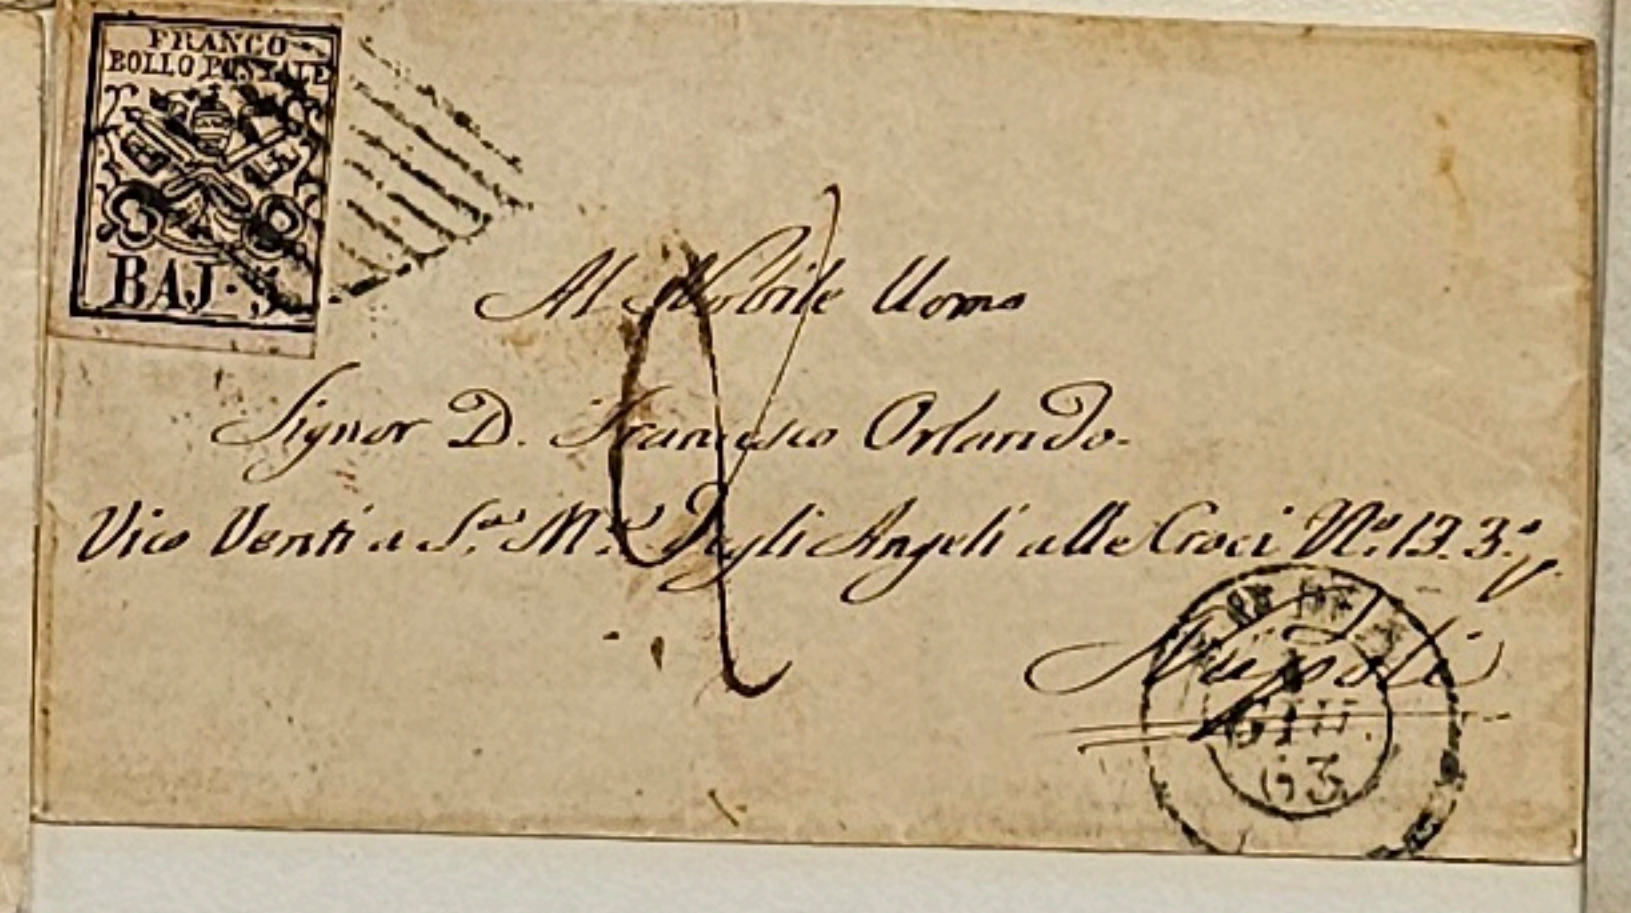 FRANCO
BOLLO POSTALE
BAJ. 5
Al Nobile Uomo
Signor D. Francesco Orlando.
Vico Venti a S.ª M.ª Degli Angeli alle Croci Nº. 13. 3.º p.
Napoli
GIU.
63